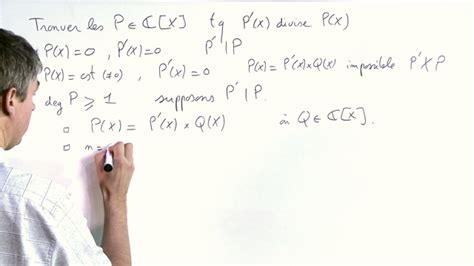 Trouver les P ∈ ℂ[X] tq P'(X) divise P(X)
P(X) = 0 , P'(X) = 0 P' | P
P(X) = cst (≠0) P'(X) = 0 P(X) = P'(X) × Q(X) impossible P' ∤ P
deg P ⩾ 1 supposons P' | P.
▫ P(X) = P'(X) × Q(X) où Q ∈ ℂ[X].
▫ n =